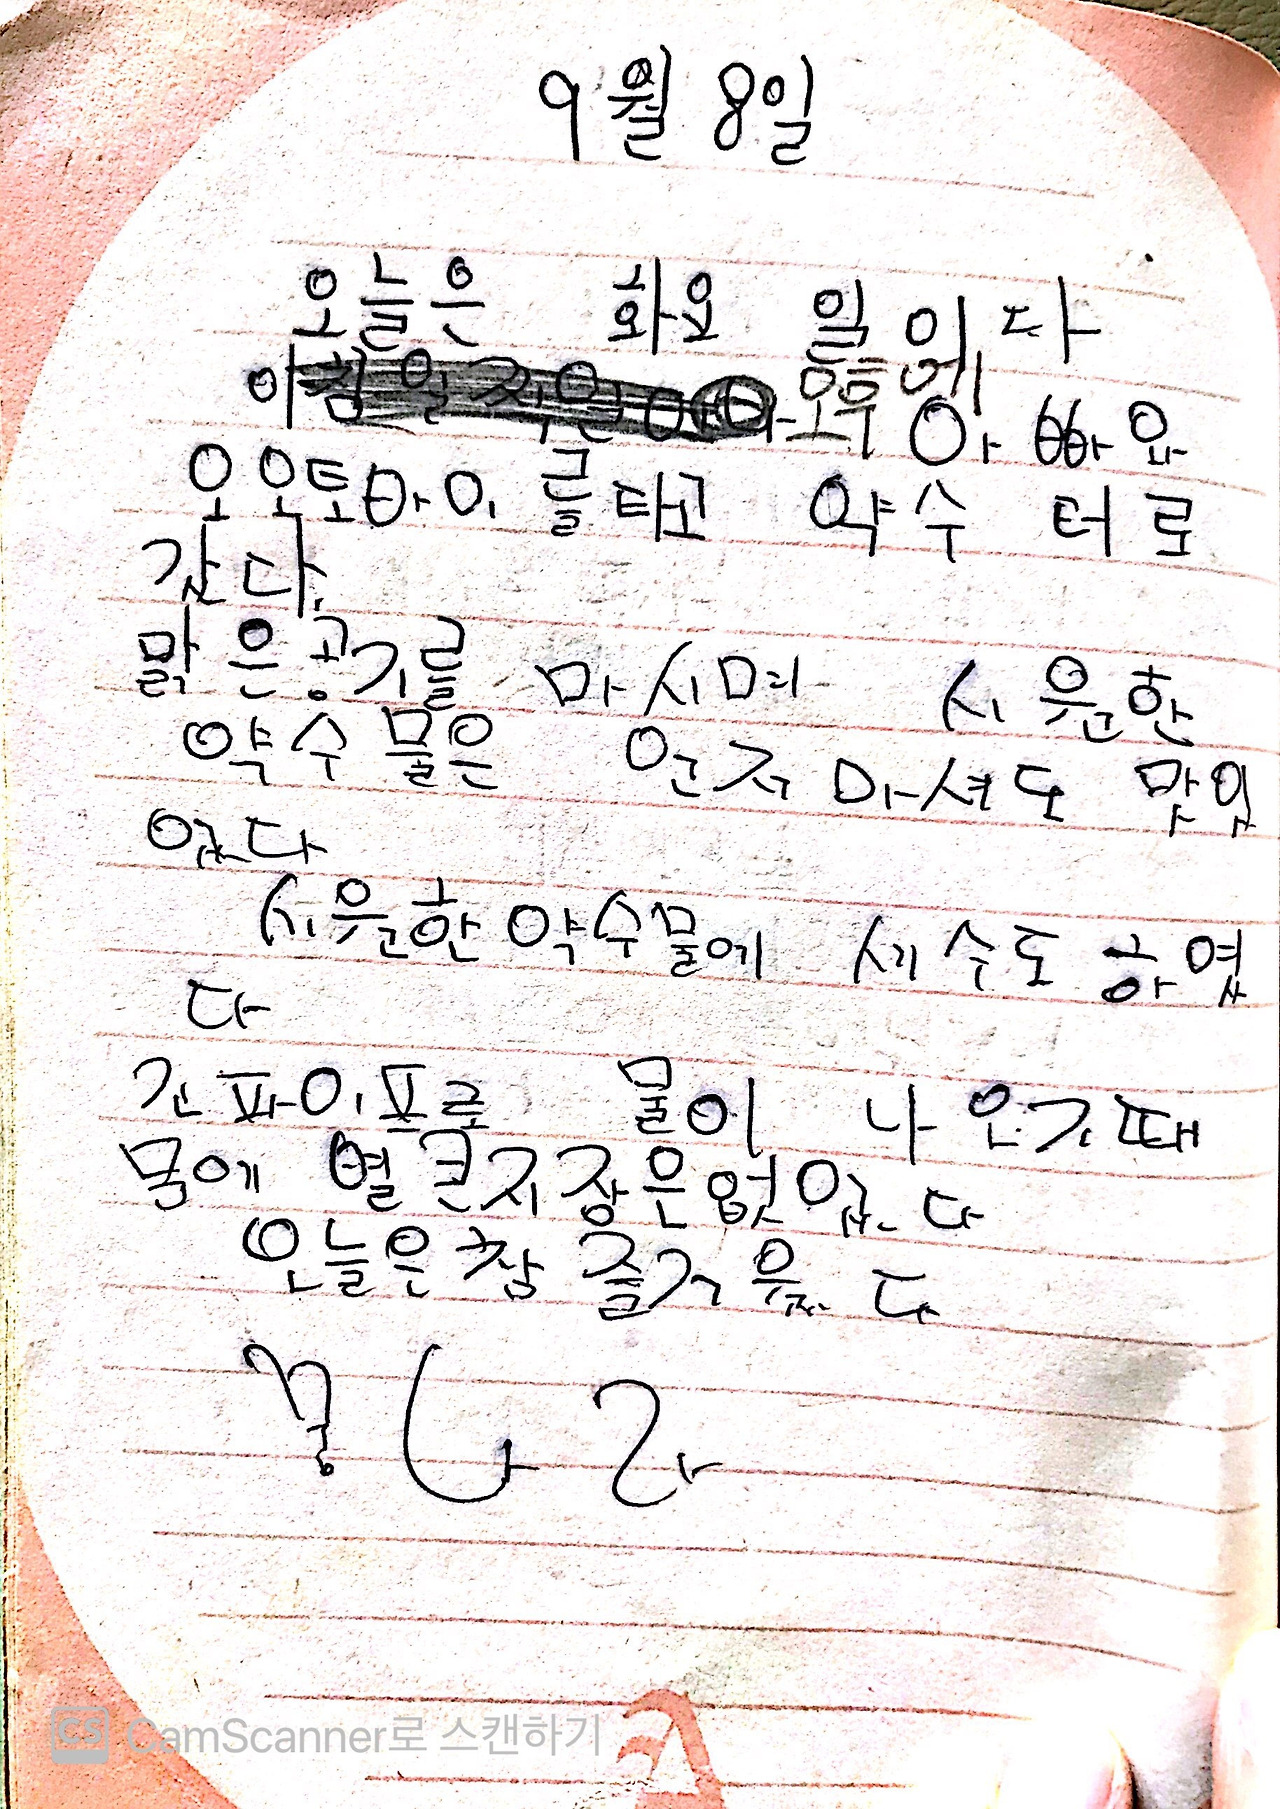 9월 8일
오늘은 화요일이다
오후에 아빠와
오오토바이를 타고 약수터로
간다.
맑은공기를 마시며 시원한
약수물은 언저 마셔도 맛있
있다
시원한 약수물에 세수도 하였
다
긴파이프로 물이 나온기때
문에 별큰지장은없있다
오늘은참 즐거웠다
CS CamScanner로 스캔하기